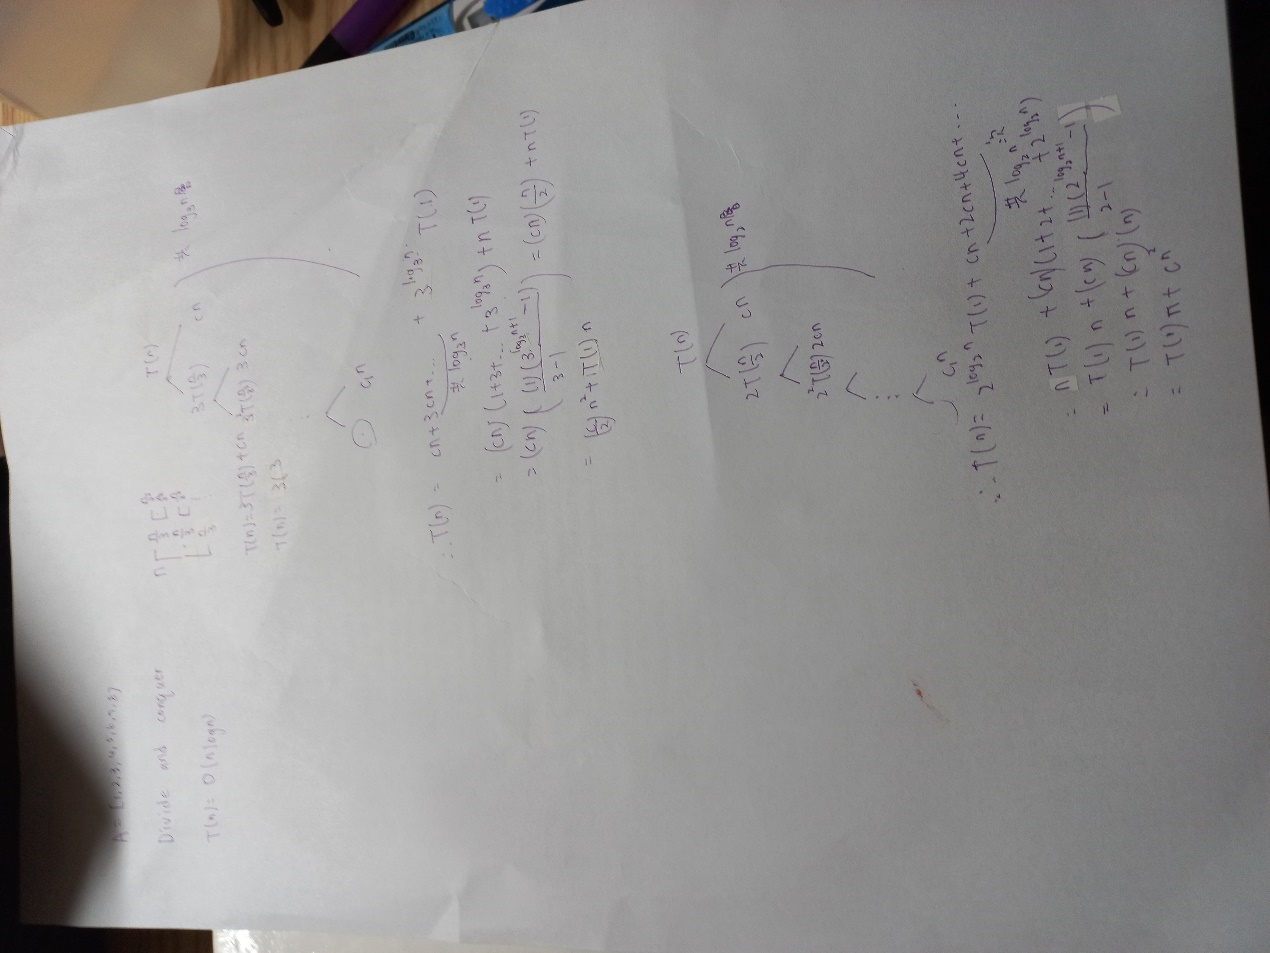 A = [1,2,3,4,5,6,7,8]
Divide and conquer
T(n) = O(nlogn)
n
T(n)
3T(n/3) cn
共 log₃n
T(n)=3T(n/3)+cn 3cn
T(n)= 3(3
cn
∴ T(n) = cn+3cn+... + 3^{log₃n} T(1)
共 log₃n
= (cn)(1+3+... +3^{log₃n})+nT(1)
=(cn)( (1)(3^{log₃n+1} -1) / 3-1 ) = (cn)(n/2)+nT(1)
= (c/2)n²+T(1)n
T(n)
2T(n/2) cn
2cn
cn
∴ T(n)= 2^{log₂n} T(1) + cn+2cn+4cn+...
共 log₂n
= nT(1) +(cn)(1+2+... +2^{log₂n})
= T(1)n+(cn)( (1)(2^{log₂n+1} -1) / 2-1 )
= T(1)n+(cn)(n)
= T(1)n+cn²